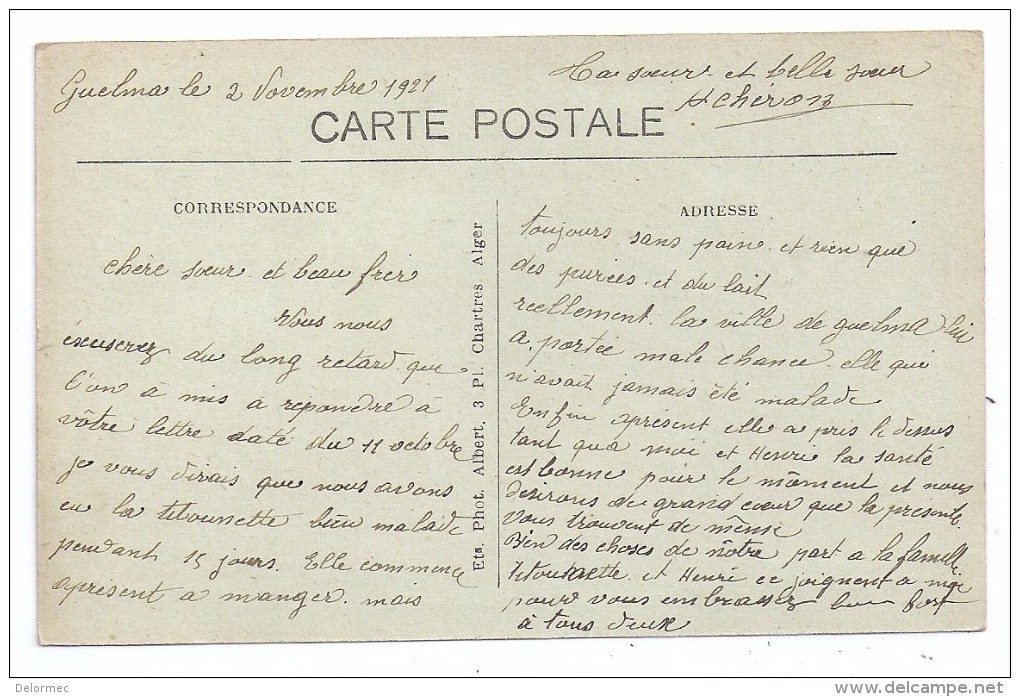 Guelma le 2 Novembre 1921
CARTE POSTALE
CORRESPONDANCE
chère sœur et beau frer
Vous nous
éxcuserez du long retard que
l'on à mis a repondre à
vôtre lettre daté du 11 octobre
je vous dirais que nous avons
eu la titounette bien malade
pendant 15 jours. Elle commence
apresent a manger. mais
Ets. Phot. Albert, 3 Pl. Chartres Alger
ADRESSE
toujours sans pain. et rien que
des purées. et du lait
reellement. la ville de guelma lui
a. portée male chance. elle qui
n'avait jamais été malade
Enfin apresent elle a pris le dessus
tant qua moi et Henri la santé
est bonne pour le môment et nous
desirons du grand cœur que la presente
vous trouvent de même
Bien des choses de nôtre part a la famille
titounette et Henri ce joignent a moi
pour vous embrassez bien fort
à tous deux
Ta sœur et belle sœur
H chéron
Delormec
delcampe.net